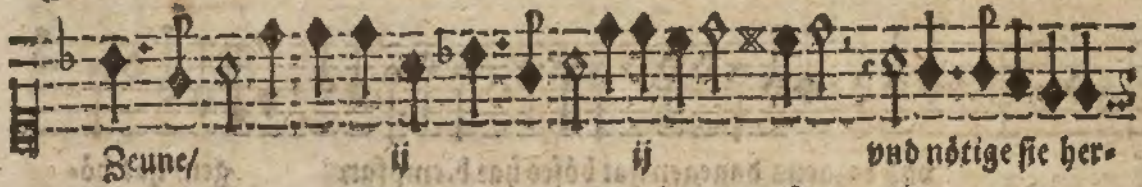 Zeune/ ij ij vnd nötige sie her⸗